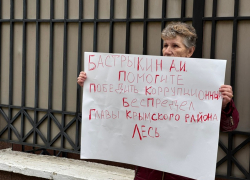 БАСТРЫКИН А.И.
ПОМОГИТЕ
ПОБЕДИТЬ КОРРУПЦИОННЫЙ
БЕСПРЕДЕЛ
ГЛАВЫ КРЫМСКОГО РАЙОНА
ЛЕСЬ